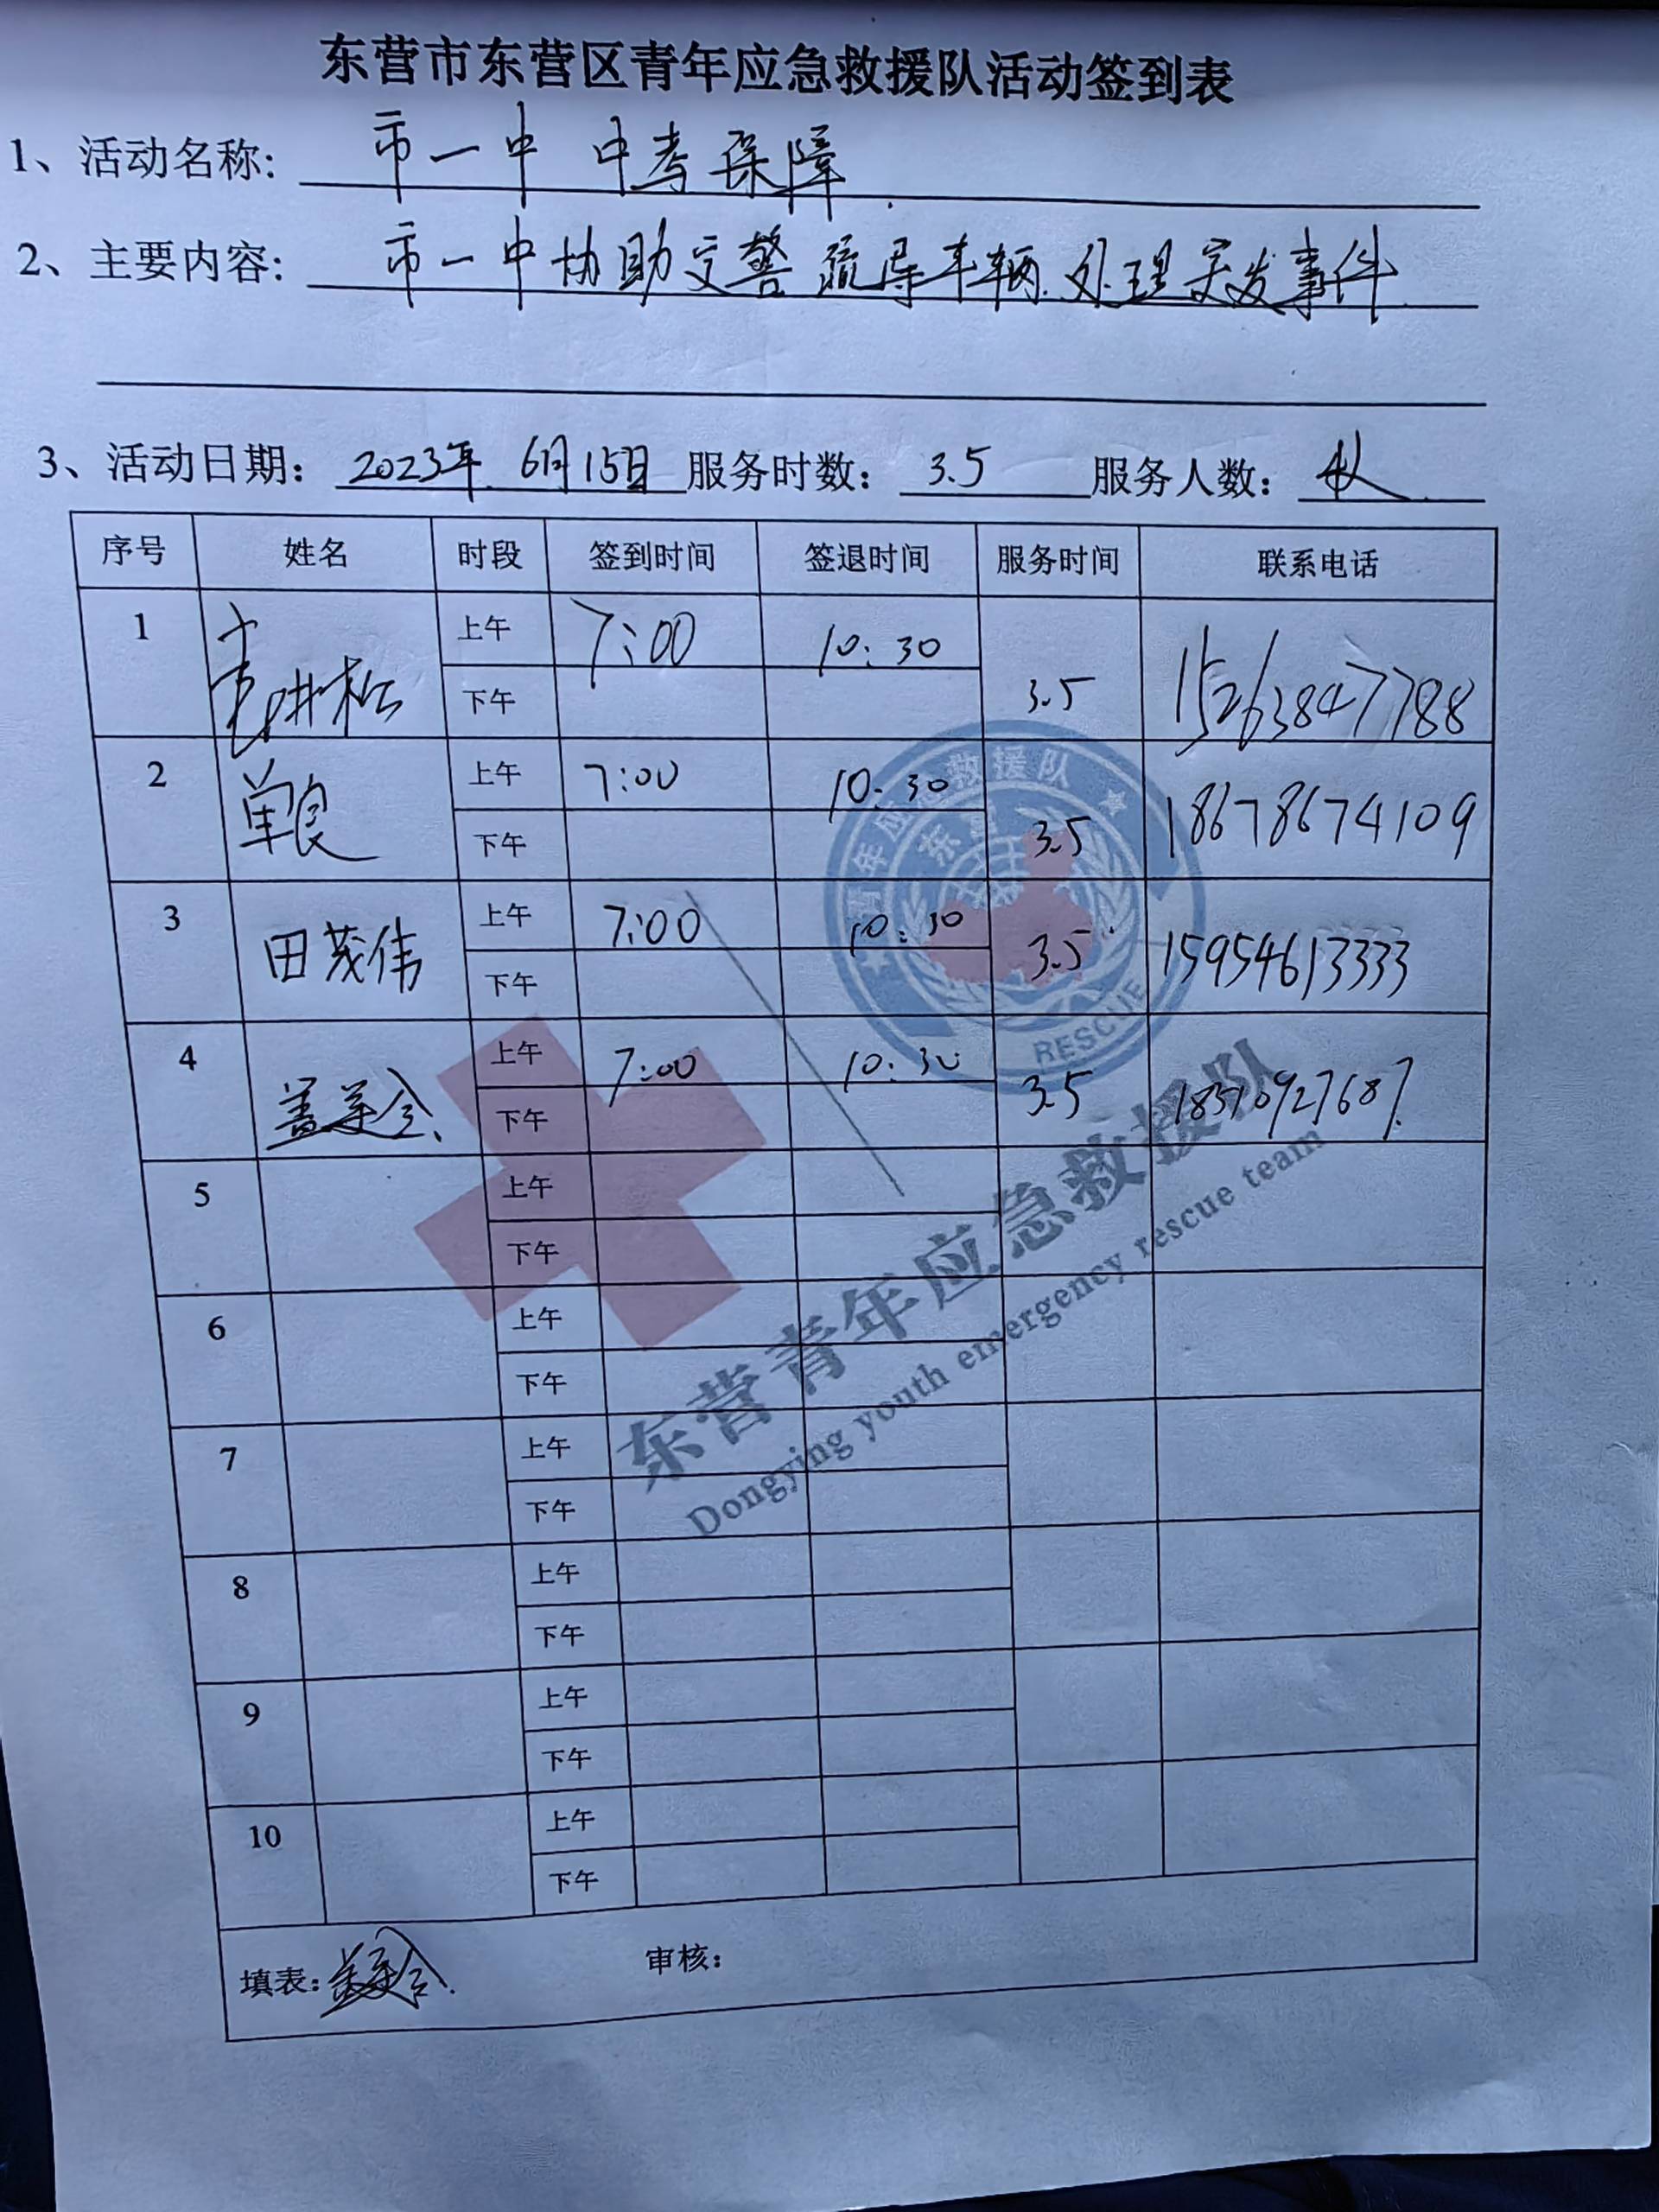 东营市东营区青年应急救援队活动签到表
1、活动名称: 市一中 中考保障
2、主要内容: 市一中协助交警疏导车辆.处理突发事件.
3、活动日期: 2023年 6月15日 服务时数: 3.5 服务人数: 4人
序号 姓名 时段 签到时间 签退时间 服务时间 联系电话
1 上午 7:00 10:30
下午 3.5 15263847788
2 单良 上午 7:00 10:30
下午 3.5 18678674109
3 田茂伟 上午 7:00 10:30
下午 3.5 15954613333
4 上午 7:00 10:30
下午 3.5
5 上午
下午
6 上午
下午
7 上午
下午
8 上午
下午
9 上午
下午
10 上午
下午
填表: 审核:
青年应急救援队
东营
RESCUE
东营青年应急救援队
Dongying youth emergency rescue team